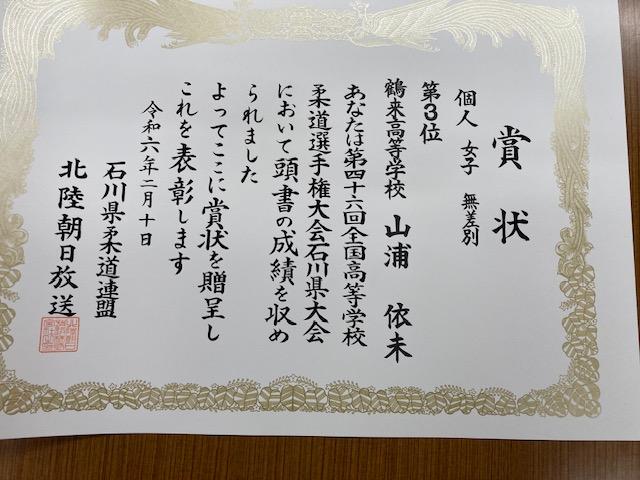 賞状
個人 女子 無差別
第3位
鶴来高等学校 山浦 依未
あなたは第四十六回全国高等学校
柔道選手権大会石川県大会
において頭書の成績を収め
られました
よってここに賞状を贈呈し
これを表彰します
令和六年二月十日
石川県柔道連盟
北陸朝日放送